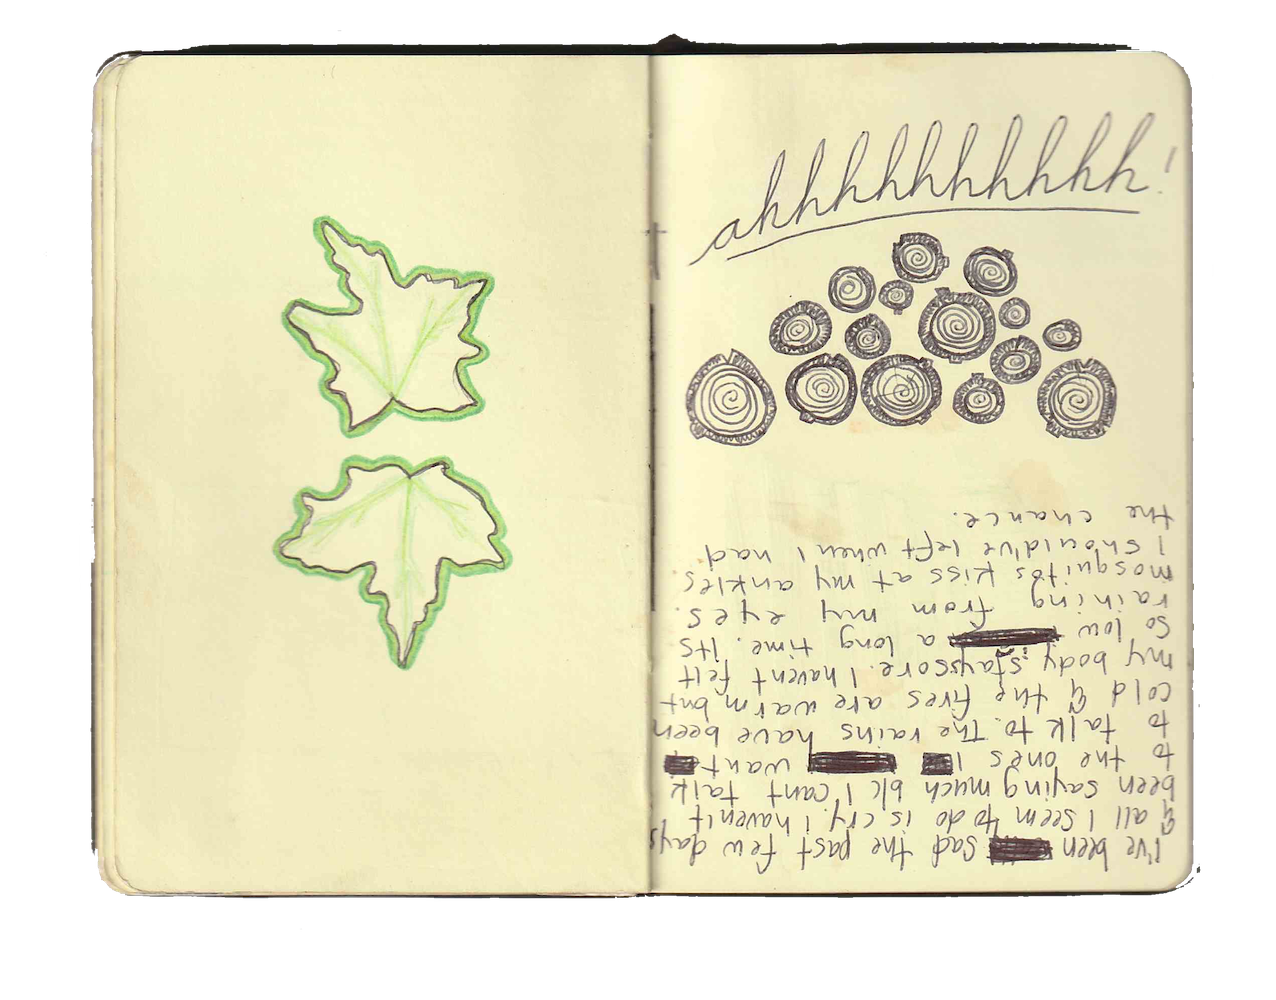 ahhhhhhhhhh!
I've been sad the past few days
& all I seem to do is cry. I haven't
been saying much b/c I can't talk
to the ones I want
to talk to. The rains have been
cold & the fires are warm but
my body stays sore. I havent felt
so low a long time. Its
raining from my eyes.
mosquitos kiss at my ankles
I should've left when I had
the chance.